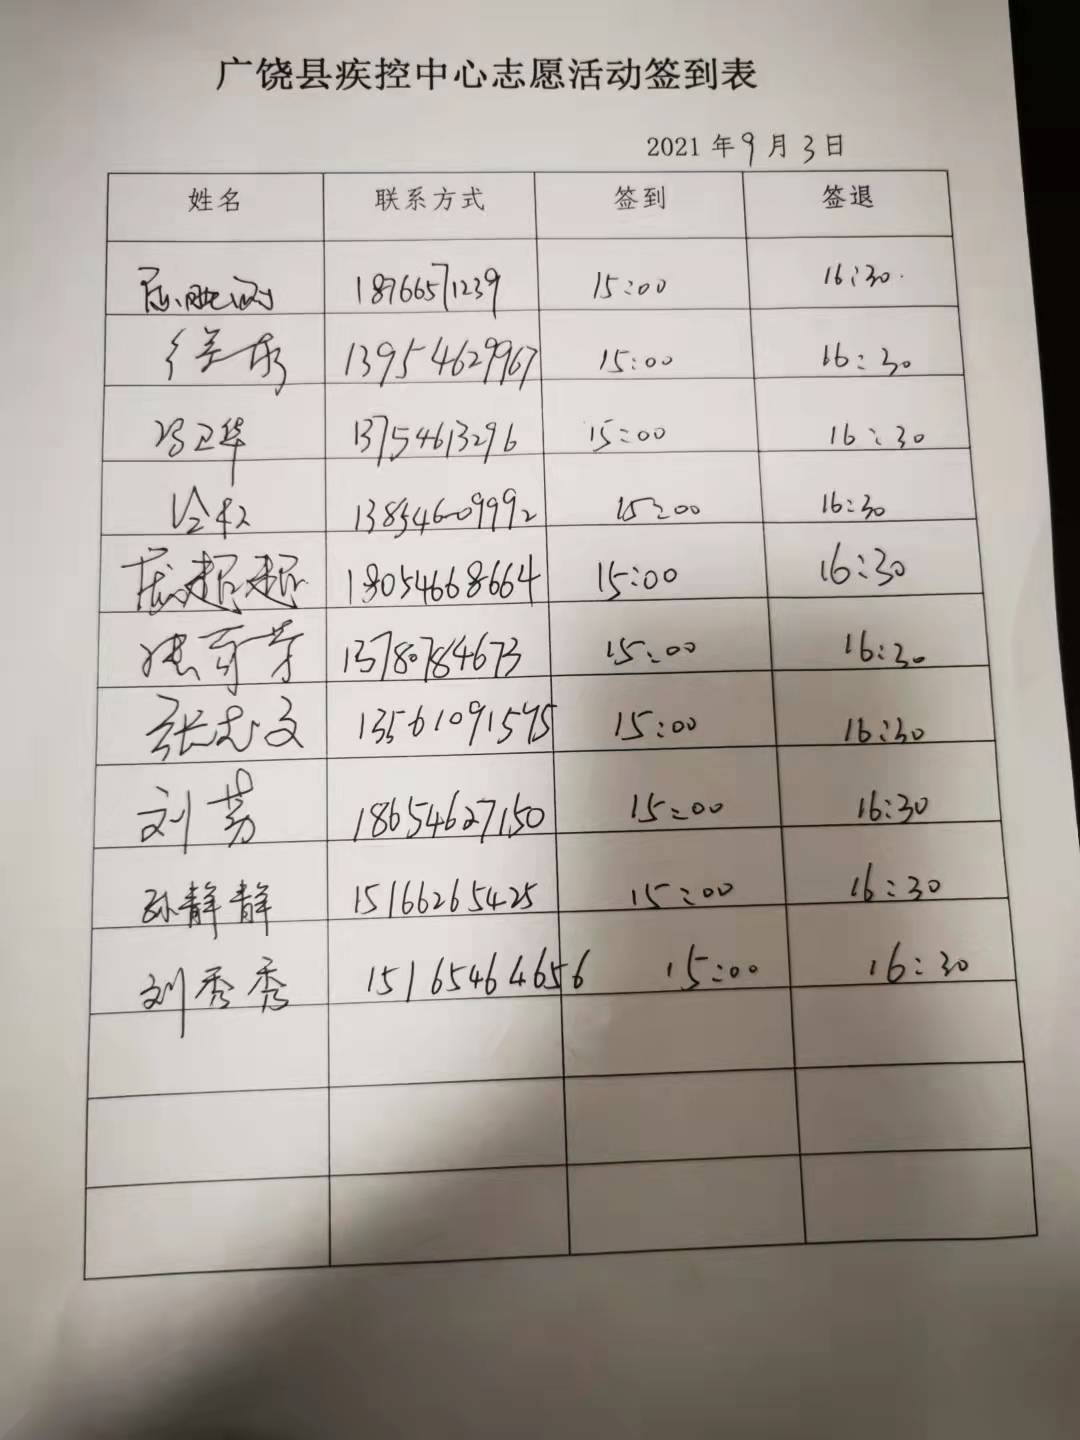 广饶县疾控中心志愿活动签到表
2021 年 9 月 3 日
姓名 联系方式 签到 签退
18766571239 15:00 16:30
13954629967 15:00 16:30
冯卫华 13754613296 15:00 16:30
13854609992 15:00 16:30
超超 18054668664 15:00 16:30
13780784673 15:00 16:30
张志文 13561091575 15:00 16:30
刘芳 18654627150 15:00 16:30
孙静静 15166265425 15:00 16:30
刘秀秀 15165464656 15:00 16:30